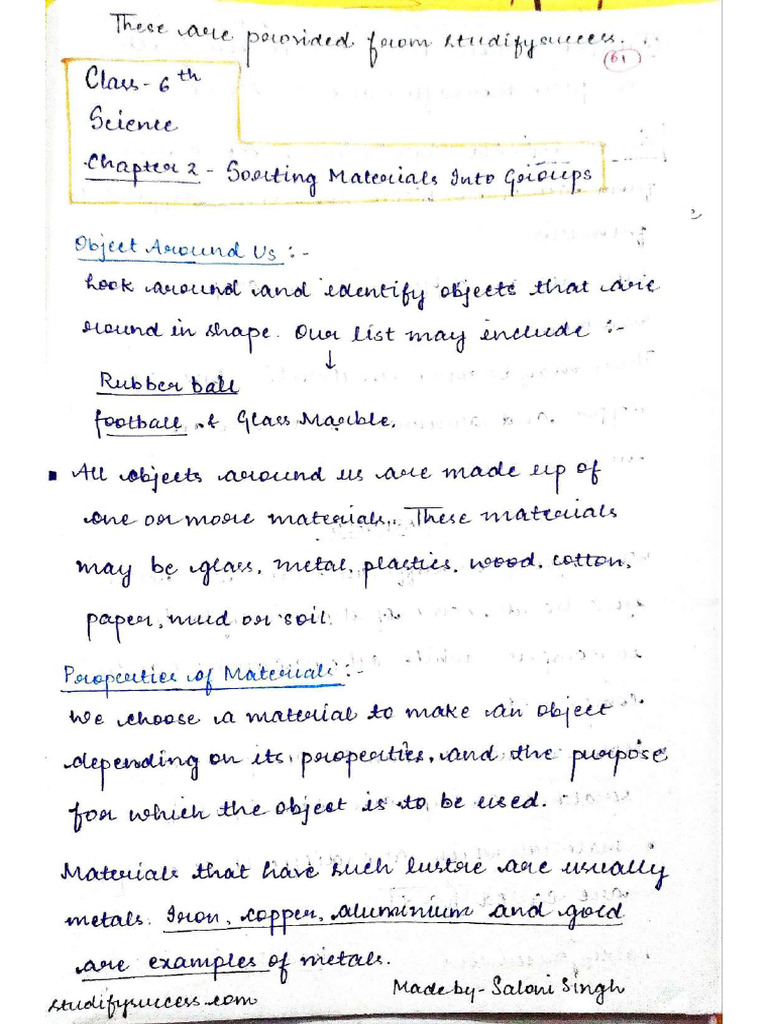 These are provided from studifysuccess.
61
Class - 6th
Science
Chapter 2 - Sorting Materials Into Groups
Object Around Us :-
Look around and identify objects that are
round in shape. Our list may include :-
↓
Rubber ball
football & Glass Marble.
▪ All objects around us are made up of
one or more materials. These materials
may be glass, metal, plastics, wood, cotton,
paper, mud or soil.
Properties of Materials :-
We choose a material to make an object
depending on its properties, and the purpose
for which the object is to be used.
Materials that have such lustre are usually
metals. Iron, copper, aluminium and gold
are examples of metals.
studifysuccess.com
Made by - Saloni Singh